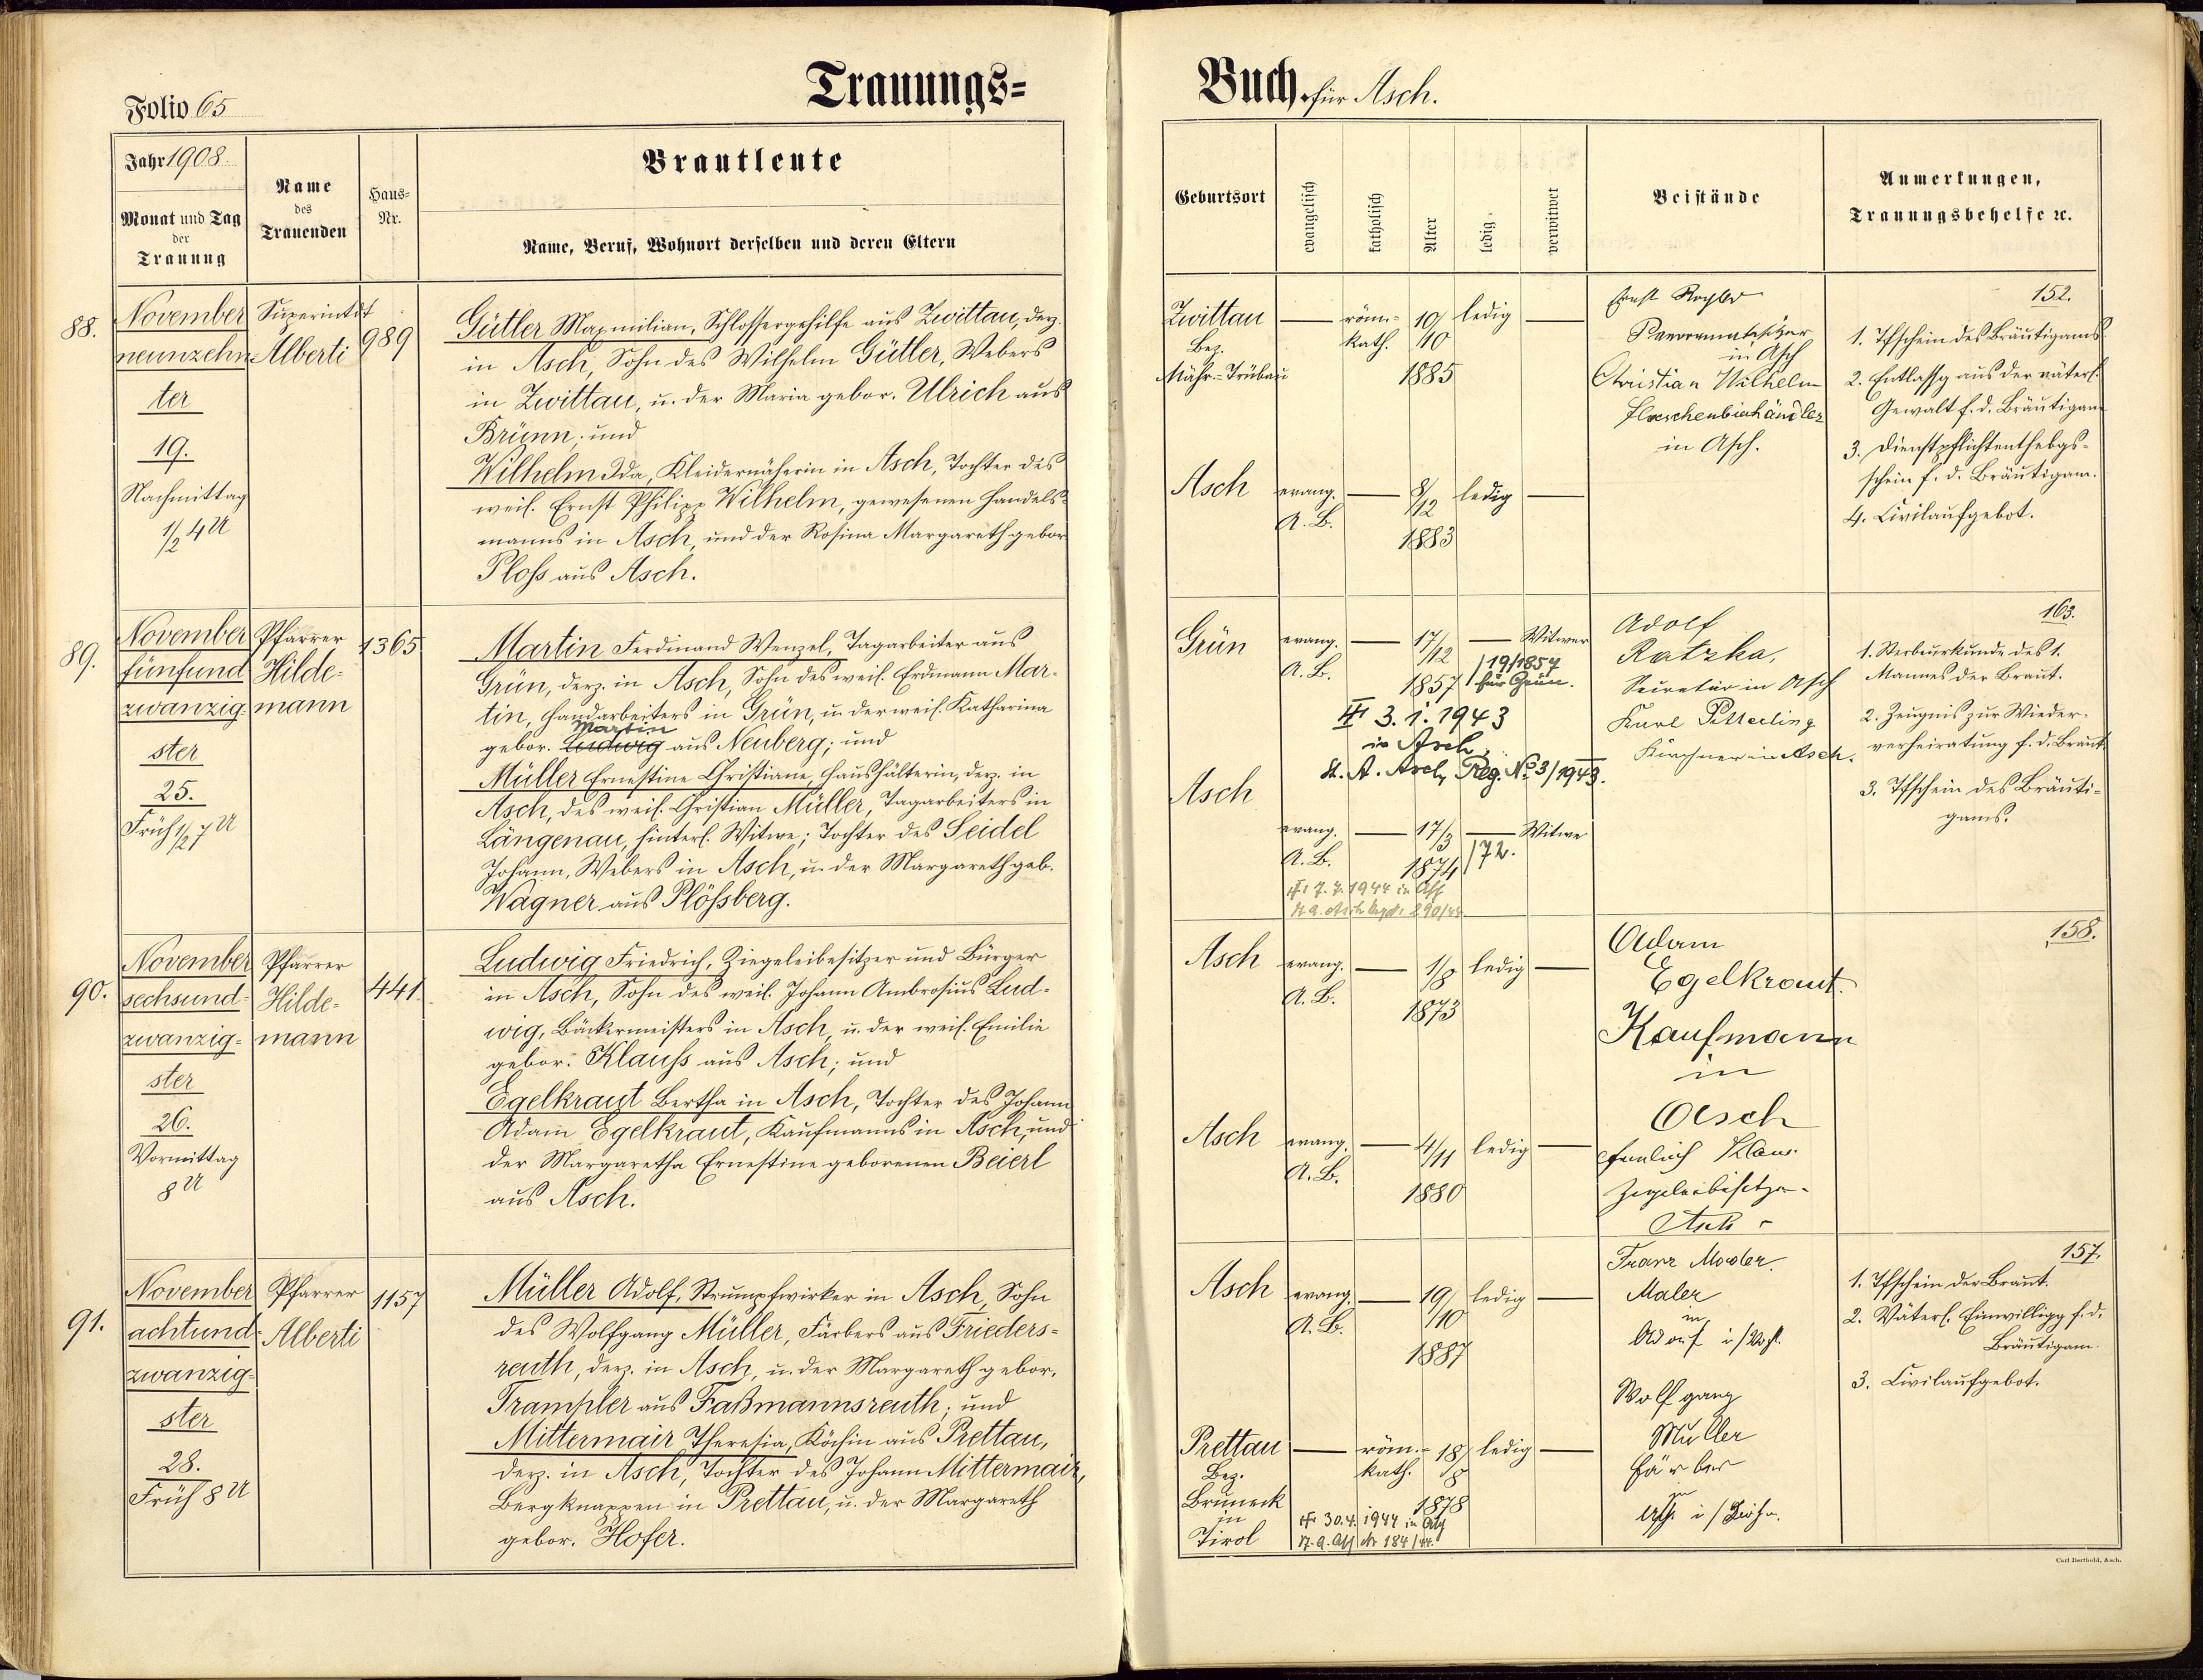 Trauungs=
Folio 65
Jahr 1908
Monat und Tag
der
Trauung
Name
des
Trauenden
Haus=
Nr.
Brautleute
Name, Beruf, Wohnort derselben und deren Eltern
88.
November
neunzehn=
ter
19.
Nachmittag
1/2 4 U
Superintdt
Alberti
989
Gütler Maxmilian, Schlossergehilfe aus Zwittau, derz.
in Asch, Sohn des Wilhelm Gütler, Webers
in Zwittau, u. der Maria gebor. Ulrich aus
Brünn; und
Wilhelm Ida, Kleidernäherin in Asch, Tochter des
weil. Ernst Philipp Wilhelm, gewesenen Handels=
manns in Asch, und der Rosina Margareth gebor
Ploß aus Asch.
89.
November
fünfund
zwanzig=
ster
25.
Früh 1/2 7 U
Pfarrer
Hilde=
mann
1365
Martin Ferdinand Wenzel, Tagarbeiter aus
Grün, derz. in Asch, Sohn des weil. Erdmann Mar=
tin, Handarbeiters in Grün, u. der weil. Katharina
Martin
gebor. Ludwig aus Neuberg; und
Müller Ernestine Christiane, Haushälterin, derz. in
Asch, des weil. Christian Müller, Tagarbeiters in
Längenau, hinterl. Witwe; Tochter des Seidel
Johann, Webers in Asch, u. der Margareth geb.
Wagner aus Plößberg.
90.
November
sechsund=
zwanzig=
ster
26.
Vormittag
8 U
Pfarrer
Hilde=
mann
441.
Ludwig Friedrich, Ziegeleibesitzer und Bürger
in Asch, Sohn des weil. Johann Ambrosius Lud=
wig, Bäckermeisters in Asch, u. der weil. Emilie
gebor. Klauß aus Asch; und
Egelkraut Bertha in Asch, Tochter des Johann
Adam Egelkraut, Kaufmanns in Asch, und
der Margaretha Ernestine geborenen Beierl
aus Asch.
91.
November
achtund=
zwanzig=
ster
28.
Früh 8 U
Pfarrer
Alberti
1157
Müller Adolf, Strumpfwirker in Asch, Sohn
des Wolfgang Müller, Färbers aus Frieders=
reuth, derz. in Asch, u. der Margareth gebor.
Trampler aus Faßmannsreuth; und
Mittermair Theresia, Köchin aus Prettau,
derz. in Asch, Tochter des Johann Mittermair,
Bergknappen in Prettau, u. der Margareth
gebor. Hofer.
Buch. für Asch.
Geburtsort
evangelisch
katholisch
Alter
ledig
verwitwet
Beistände
Anmerkungen,
Trauungsbehelfe ec.
Zwittau
Bez.
Mähr.-Trübau
röm.=
kath.
10/
/10
1885
ledig
Asch
evang.
A. B.
8/
/12
1883
ledig
Ernst
in Asch
Christian Wilhelm
Flaschenbierhändler
in Asch.
152.
1. Tfschein des Bräutigams
2. Entlassg aus der väterl.
Gewalt f. d. Bräutigam
3. Dienstpflichtenthebgs=
schein f. d. Bräutigam.
4. Civilaufgebot.
Grün
evang.
A. B.
17/
/12
1857
Witwer
/19/1857
für Grün.
3. 1. 1943
in Asch,
St. A. Asch, Reg. No 3/1943.
Asch
evang.
A. B.
17/3
1874
/72.
Witwe
7. 7. 1944 in Asch
St. A. Asch 290/44
Adolf
Ratzka,
Secretär in Asch
Karl Pitterling
Kirchner in Asch.
163.
1. Sterbeurkunde des 1.
Mannes der Braut.
2. Zeugnis zur Wieder=
verheiratung f. d. Braut
3. Tfschein des Bräuti=
gams.
Asch
evang.
A. B.
1/8
1873
ledig
Asch
evang.
A. B.
4/11
1880
ledig
Adam
Egelkraut.
Kaufmann
in
Asch
Ziegeleibesitzer
Asch
158.
Asch
evang.
A. B.
19/
/10
1887
ledig
Prettau
Bez.
Bruneck
in
Tirol
röm.=
kath.
18/
/8
1878
ledig
30. 4. 1944 in Asch
St. A. Asch Nr 184/44.
Franz Moder.
Maler
in
Adorf i/Vogtl.
Wolfgang
Müller
Färber
Asch i/Böhm.
157.
1. Tfschein der Braut.
2. Väterl. Einwilligg f. d.
Bräutigam.
3. Civilaufgebot.
Carl Berthold, Asch.